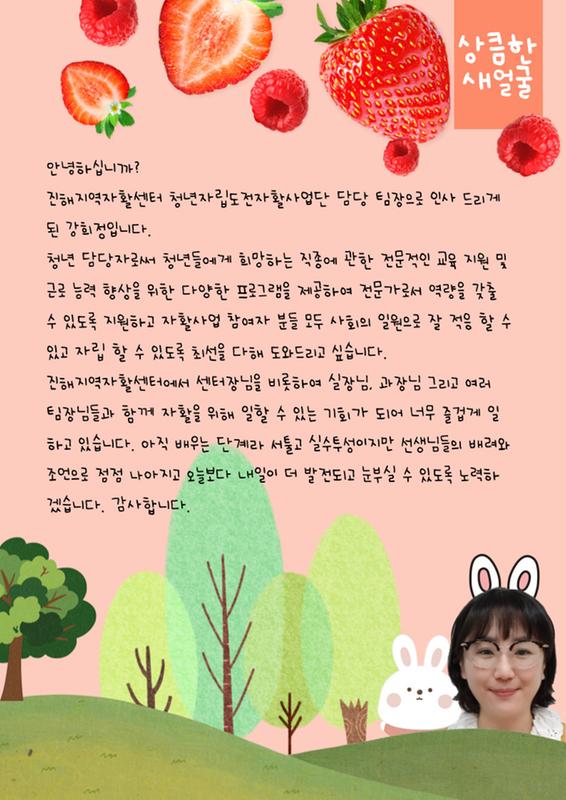 상큼한
새얼굴
안녕하십니까?
진해지역자활센터 청년자립도전자활사업단 담당 팀장으로 인사 드리게
된 강희정입니다.
청년 담당자로써 청년들에게 희망하는 직종에 관한 전문적인 교육 지원 및
근로 능력 향상을 위한 다양한 프로그램을 제공하여 전문가로서 역량을 갖출
수 있도록 지원하고 자활사업 참여자 분들 모두 사회의 일원으로 잘 적응 할 수
있고 자립 할 수 있도록 최선을 다해 도와드리고 싶습니다.
진해지역자활센터에서 센터장님을 비롯하여 실장님, 과장님 그리고 여러
팀장님들과 함께 자활을 위해 일할 수 있는 기회가 되어 너무 즐겁게 일
하고 있습니다. 아직 배우는 단계라 서툴고 실수투성이지만 선생님들의 배려와
조언으로 점점 나아지고 오늘보다 내일이 더 발전되고 눈부실 수 있도록 노력하
겠습니다. 감사합니다.